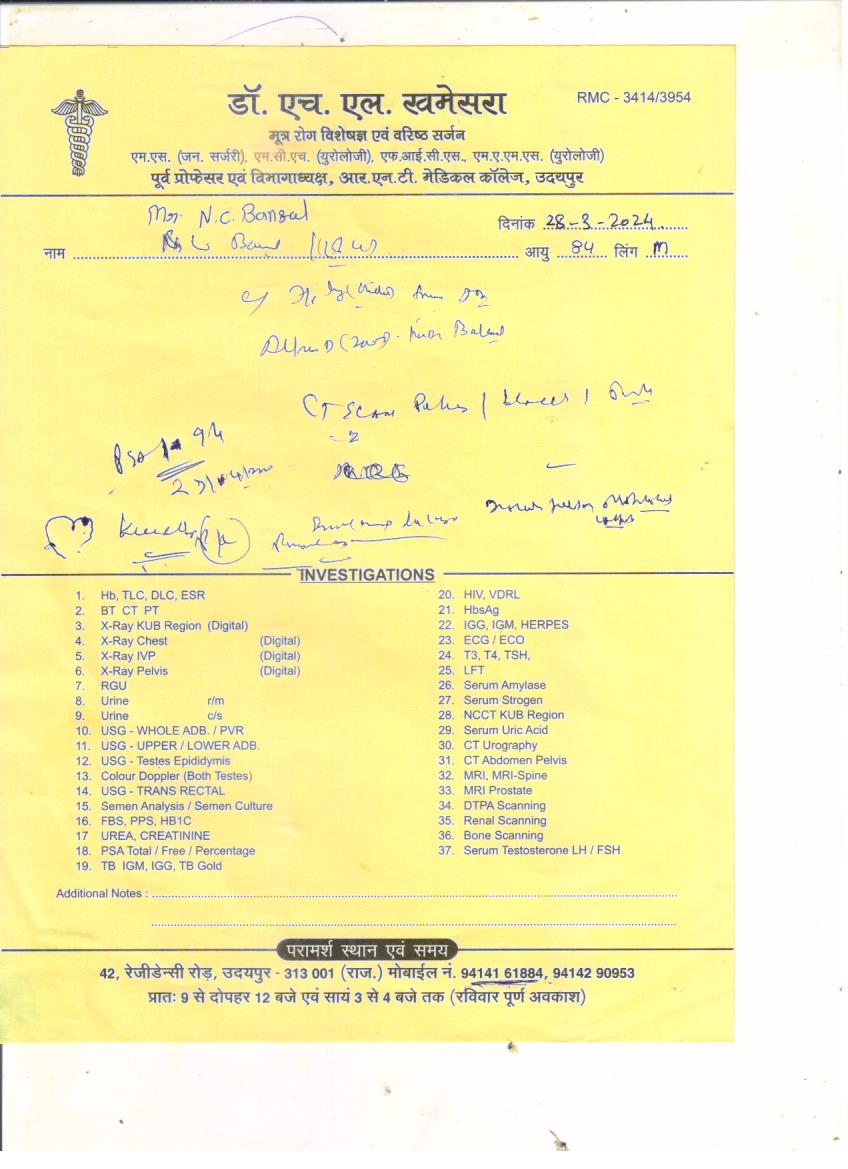 डॉ. एच. एल. खमेसरा
RMC - 3414/3954
मूत्र रोग विशेषज्ञ एवं वरिष्ठ सर्जन
एम.एस. (जन. सर्जरी), एम.सी.एच. (युरोलोजी), एफ.आई.सी.एस., एम.ए.एम.एस. (युरोलोजी)
पूर्व प्रोफेसर एवं विभागाध्यक्ष, आर.एन.टी. मेडिकल कॉलेज, उदयपुर
Mr. N.C. Bansal
दिनांक 28-3-2024
नाम आयु 84 लिंग M
CT Scan
INVESTIGATIONS
1. Hb, TLC, DLC, ESR
2. BT CT PT
3. X-Ray KUB Region (Digital)
4. X-Ray Chest (Digital)
5. X-Ray IVP (Digital)
6. X-Ray Pelvis (Digital)
7. RGU
8. Urine r/m
9. Urine c/s
10. USG - WHOLE ADB. / PVR
11. USG - UPPER / LOWER ADB.
12. USG - Testes Epididymis
13. Colour Doppler (Both Testes)
14. USG - TRANS RECTAL
15. Semen Analysis / Semen Culture
16. FBS, PPS, HB1C
17 UREA, CREATININE
18. PSA Total / Free / Percentage
19. TB IGM, IGG, TB Gold
20. HIV, VDRL
21. HbsAg
22. IGG, IGM, HERPES
23. ECG / ECO
24. T3, T4, TSH,
25. LFT
26. Serum Amylase
27. Serum Strogen
28. NCCT KUB Region
29. Serum Uric Acid
30. CT Urography
31. CT Abdomen Pelvis
32. MRI, MRI-Spine
33. MRI Prostate
34. DTPA Scanning
35. Renal Scanning
36. Bone Scanning
37. Serum Testosterone LH / FSH
Additional Notes :
परामर्श स्थान एवं समय
42, रेजीडेन्सी रोड़, उदयपुर - 313 001 (राज.) मोबाईल नं. 94141 61884, 94142 90953
प्रातः 9 से दोपहर 12 बजे एवं सायं 3 से 4 बजे तक (रविवार पूर्ण अवकाश)